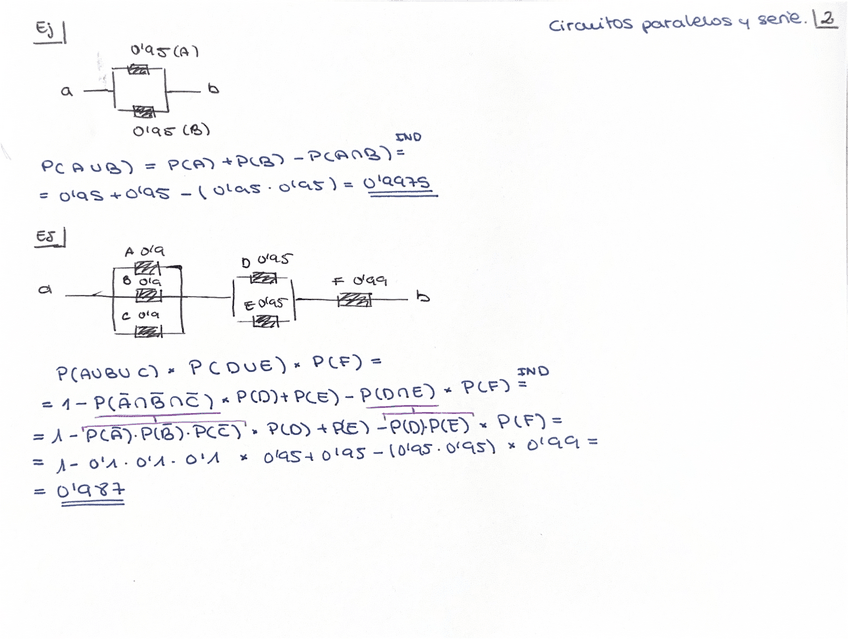 Circuitos paralelos y serie. 2
Ej
0'95 (A)
a b
0'95 (B)
P(A∪B) = P(A) + P(B) - P(A∩B) =^IND
= 0'95 + 0'95 - (0'95 · 0'95) = 0'9975
EJ
A 0'9
B 0'9
C 0'9
D 0'95
E 0'95
F 0'99
a b
P(A∪B∪C) * P(D∪E) * P(F) =
= 1 - P(Ā∩B̄∩C̄) * P(D) + P(E) - P(D∩E) * P(F) =^IND
= 1 - P(Ā)·P(B̄)·P(C̄) * P(D) + P(E) - P(D)·P(E) * P(F) =
= 1 - 0'1 · 0'1 · 0'1 * 0'95 + 0'95 - (0'95 · 0'95) * 0'99 =
= 0'987